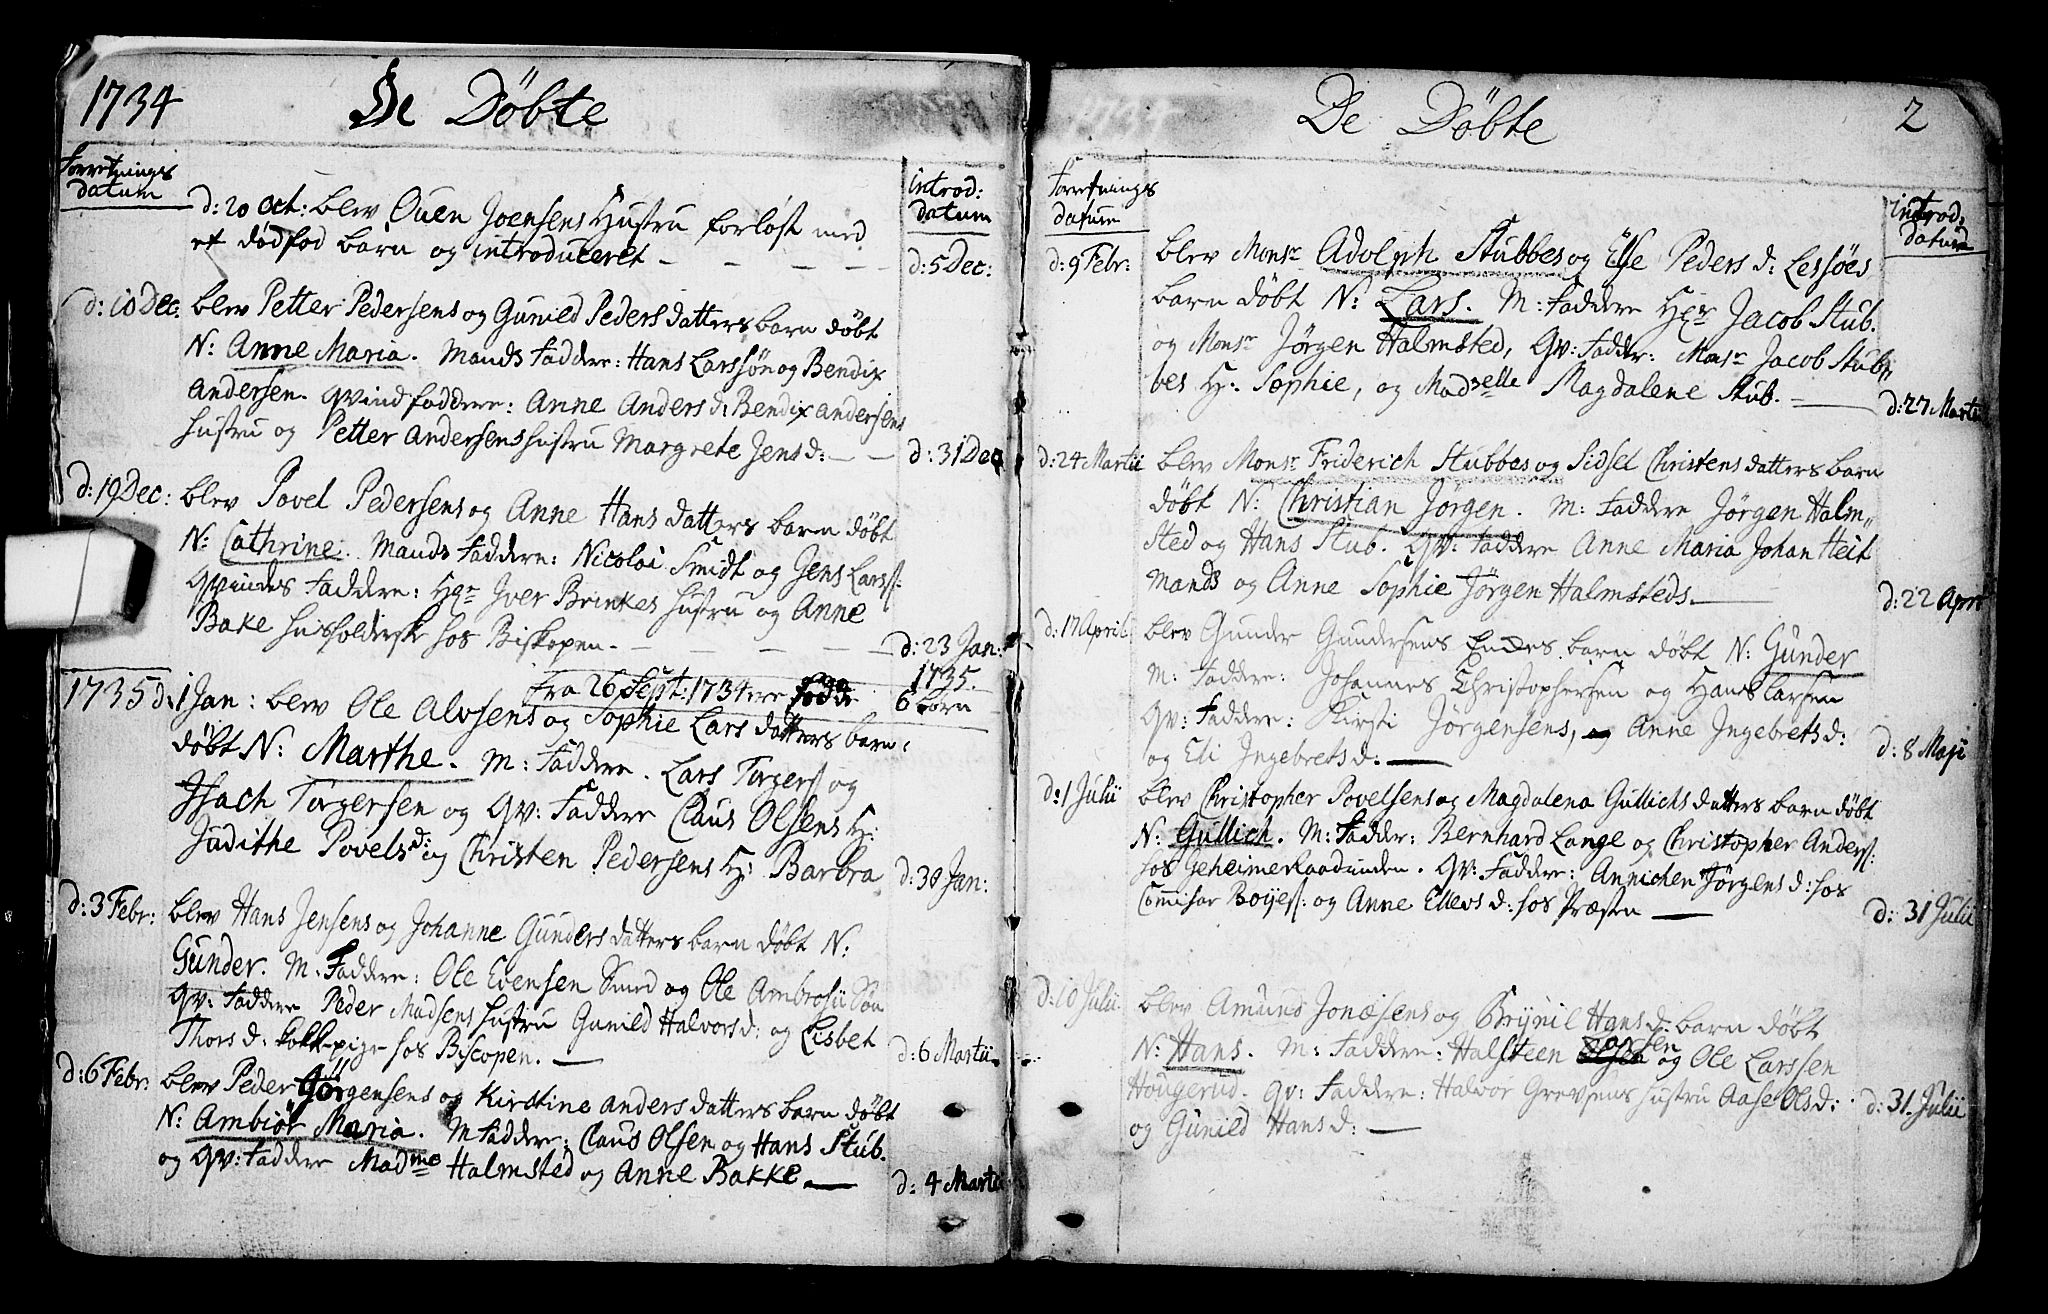 1734 De Döbte
Forretnings datum
introd: datum
d: 20 Oct: blev Ouen Joensens Hustru forløst med
et dødfød barn og introduceret – – – – d: 5 Dec:
d: 10 Dec: blev Petter Pedersens og Gunild Peders datters barn døbt
N: Anne Maria. Mands Faddere: Hans Larssøn og Bendix
Andersen. qvindfaddere: Anne Anders d: Bendix andersens
hustru og Petter Andersens hustru Margrete Jens d: – – d: 31 Dec
d: 19 Dec: blev Povel Pedersens og Anne Hans datters barn døbt
N: Cathrine. Mands Faddere: Nicolai Smidt og Jens Larss:
Qvindes Faddere: Hr Iver Brinkes hustru og Anne
Bake husholderske hos Biskopen. – – – – d: 23 Jan: 1735.
Fra 26 Sept: 1734 ere fødde 6 børn
1735 d: 1 Jan: blev Ole Alvsens og Sophie Lars datters barn
døbt N: Marthe. M: Faddere. Lars Torgers: og
Isach Torgersen og qv: Faddere Claus Olsens H:
Judithe Povels d: og Christen Pedersens H: Barbra d: 30 Jan:
d: 3 Febr: blev Hans Jensens og Johanne Gunders datters barn døbt N:
Gunder. M: Faddere: Ole Evensen Smed og Ole Ambrosii Søn
qv: Faddere Peder Madsens hustru Gunild Halvors d: og Lisbet
Thors d: kokkepige hos Biscopen. – d: 6 Martii
d: 6 Febr: blev Peder Jörgensens og Kirstine anders datters barn døbt
N: Ambiör Maria. M Faddere: Claus Olsen og Hans Stub.
og qv: Faddere Madme Halmsted og Anne Bakke – d: 4 Martii
De Döbte 2
Forretnings datum
introd: datum
d: 9 Febr: blev Monsr Adolph Stubbes og Else Peders d: Lessøes
barn døbt N: Lars. M: Faddere Hr Jacob Stub.
og Monsr Jörgen Halmsted, qv: Fadder: Monsr Jacob Stub,,
bes H: Sophie, og Madselle Magdalene Stub. – d: 27 Martii
d: 24 Martii blev Monsr Friderich Stubbes og Sidsel Christens datters barn
døbt N: Christian Jørgen. M: Faddere Jørgen Halm,,
sted og Hans Stub. qv: Faddere Anne Maria Johan Heit
mands og Anne Sophie Jørgen Halmsteds. – d: 22 April
d: 17 April. blev Gunder Gundersens Endes barn døbt N: Gunder
M: Faddere: Johannes Christophersen og Hans Larsen
qv: Faddere: Kirsti Jørgensens, og Anne Ingebrets d:
og Eli Ingebrets d: – d: 8 Maji
d: 1 Julii blev Christopher Povelsens og Magdalena Gullichs datters barn døbt
N: Gullich. M: Fadder: Bernhard Lange og Christopher Anders:
hos Geheimeraadinden. qv: Faddere: Annichen Jörgens d: hos
Commisar Boyes: og Anne Ellevs d: hos Præsten – d: 31 Julii
d: 10 Julii blev Amund Jonæsens og Brynil Hans d: barn døbt
N: Hans. M: Faddere: Halsteen Olsen Larsen og Ole Larssen
Hougerud. qv: Faddere: Halvor Grevsens hustru Aase Ols d:
og Gunild Hans d: – d: 31. Julii